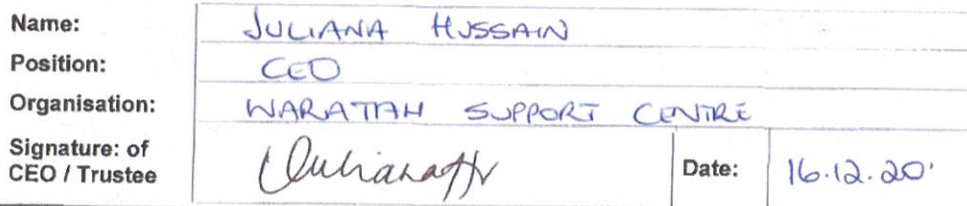 Name: JULIANA HUSSAIN
Position: CEO
Organisation: WARATAH SUPPORT CENTRE
Signature: of
CEO / Trustee Julianah Date: 16.12.20